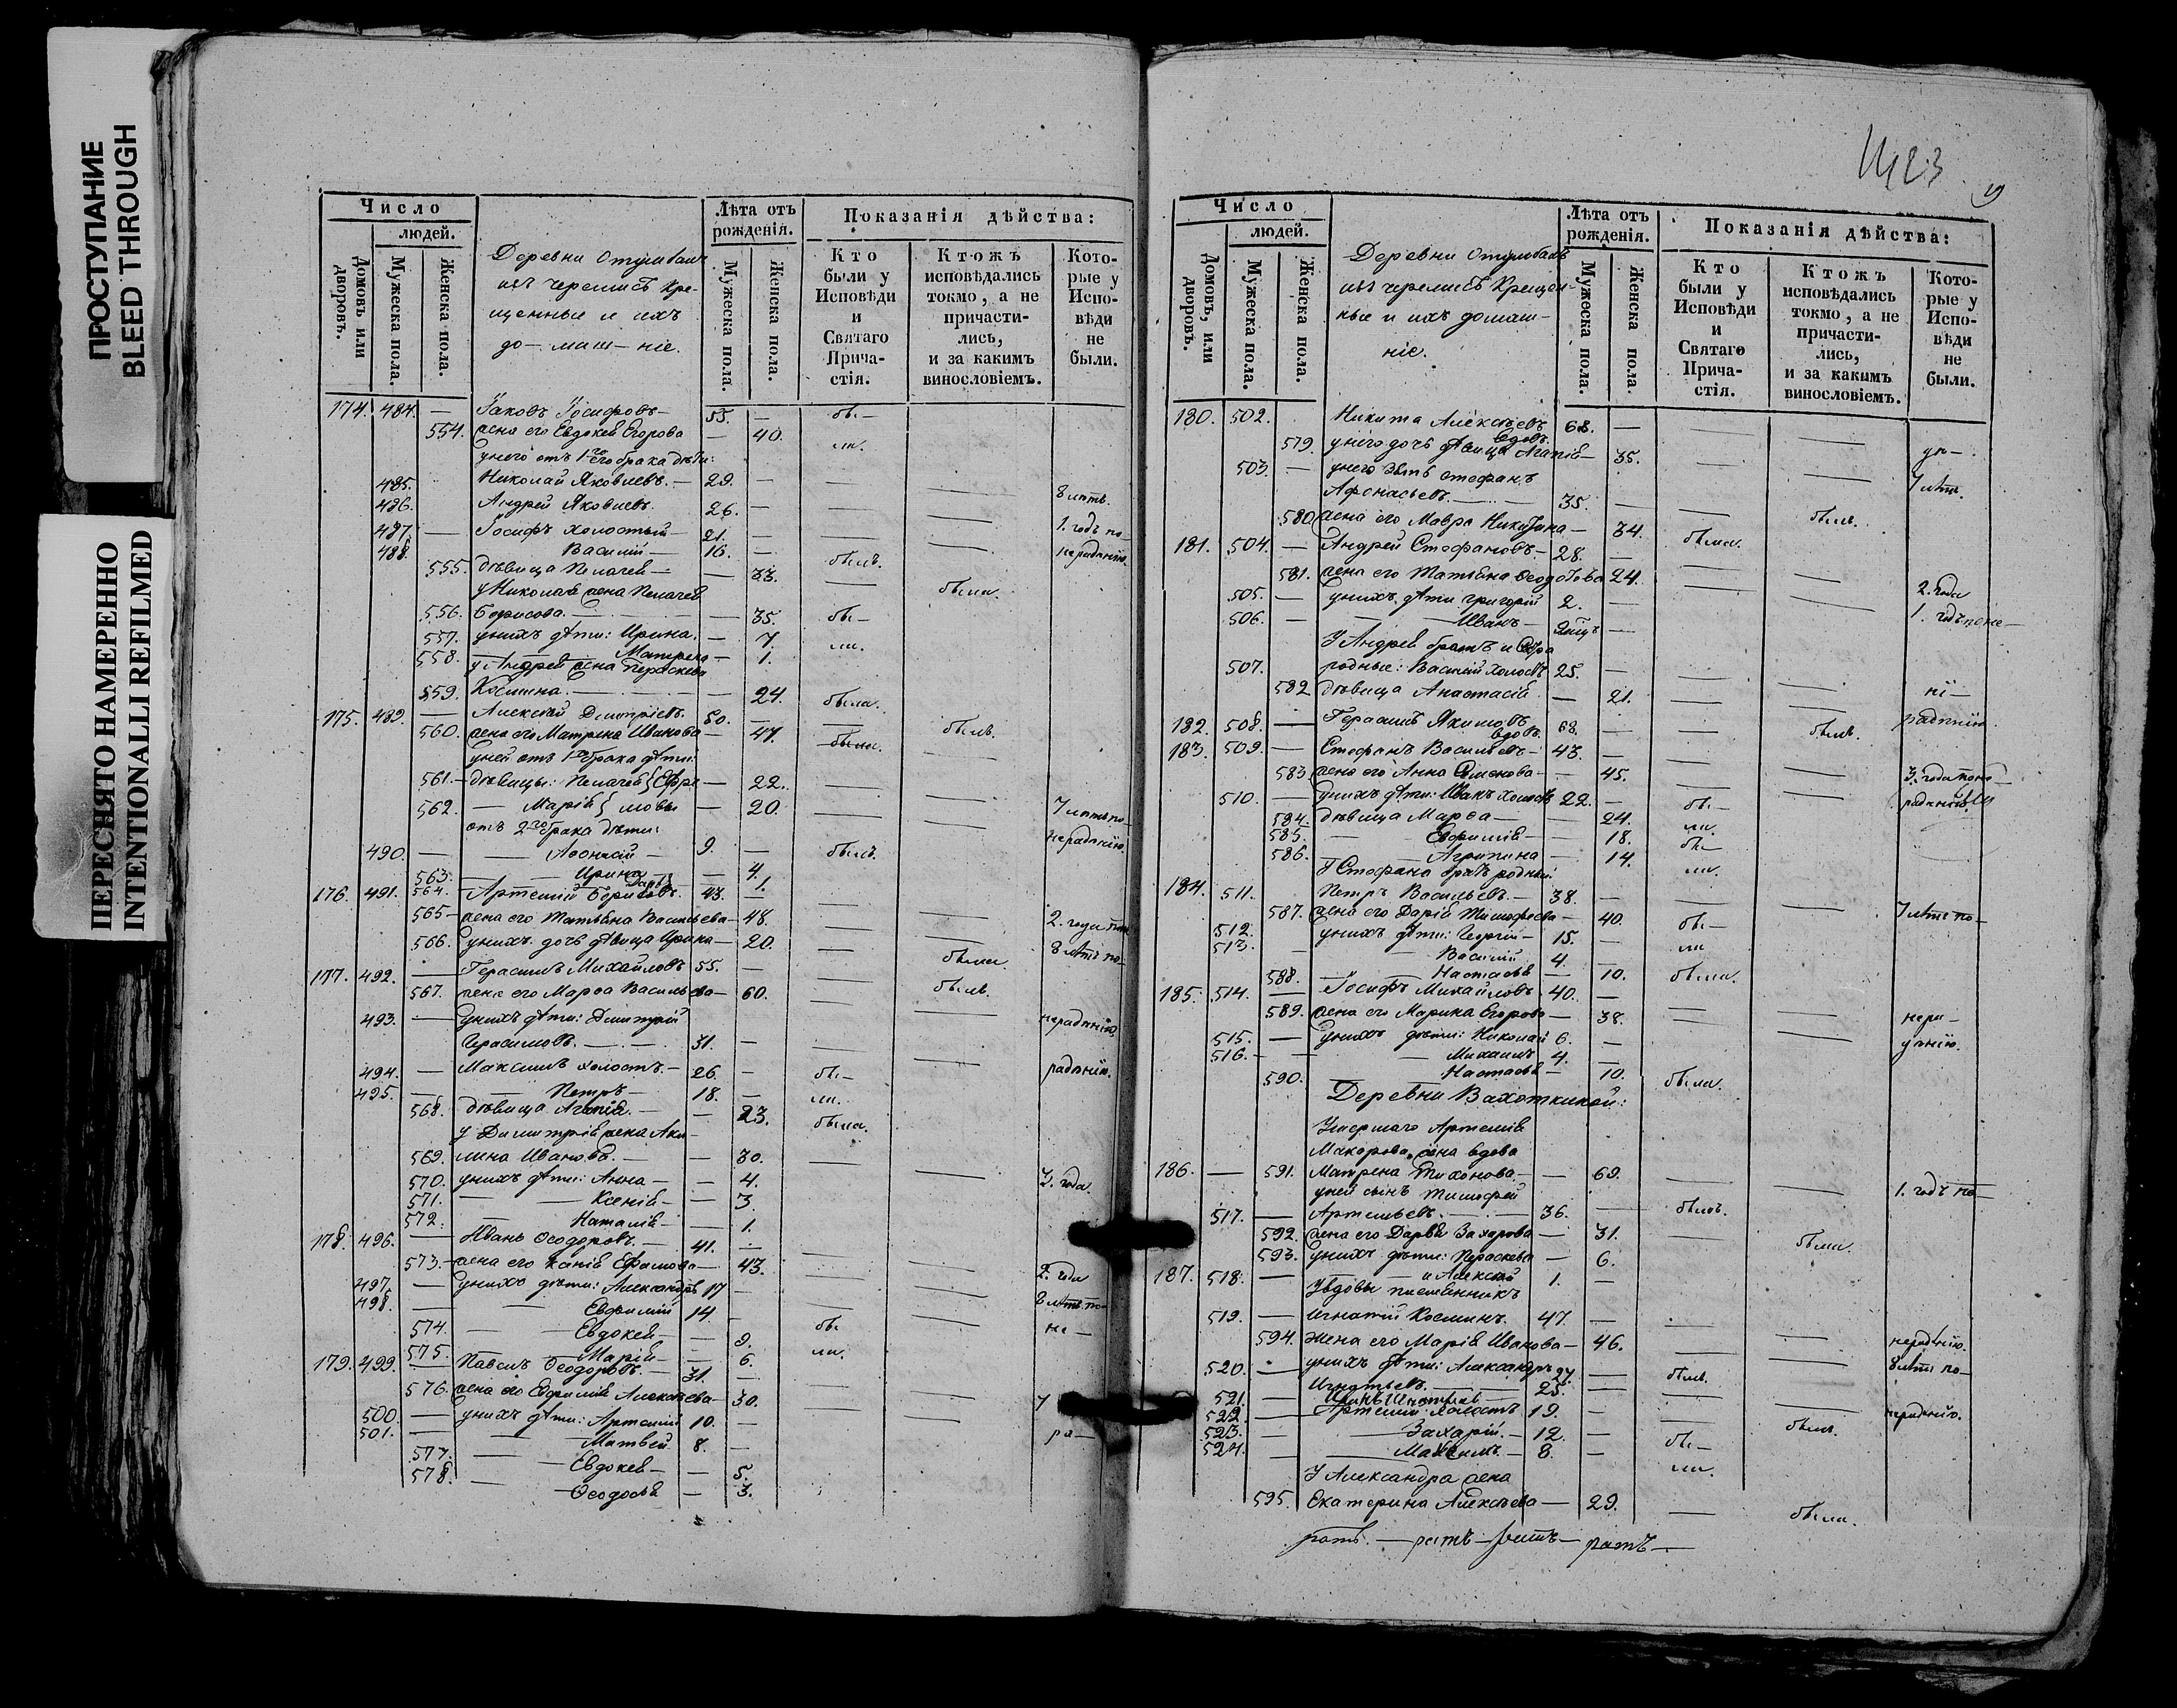 ПРОСТУПАНИЕ
BLEED THROUGH
ПЕРЕСНЯТО НАМЕРЕННО
INTENTIONALLI REFILMED
Число
людей.
Домовъ или дворовъ.
Мужеска пола.
Женска пола.
Деревни
изъ черемисъ кре-
щенные и ихъ
до- маш- ніе.
Лѣта отъ рожденія.
Мужеска пола.
Женска пола.
Показанія дѣйства:
Кто были у Исповѣди и Святаго Прича-стія.
Ктожъ исповѣдались токмо, а не причасти-лись, и за какимъ винословіемъ.
Кото-рые у Испо-вѣди не были.
174. 484. — Іаковъ Іосифовъ — 55. — бы —
554. жена его Евдокея Егорова — 40. ли.
у него отъ 1го брака дѣти:
485. Николай Яковлевъ. — 29. —
486. Андрей Яковлевъ. 26. — 8 лѣтъ.
487. — Іосифъ холостый — 21. — 1. годъ по
488. Василій — 16. — былъ. нерадѣнію.
555. дѣвица Пелагея — — 33. была.
у Николая жена Пелагея
556. Борисова. — 35. бы —
557. у нихъ дѣти: Ирина. — 7. ли.
558. — Матрена — 1.
у Андрея жена Параскева
559. Космина. — — 24. была.
175. 489. — Алексѣй Дмитріевъ. 50. — былъ.
560. жена его Матрена Иванова — 47. была.
у ней отъ 1го брака дѣти:
561. — дѣвицы: Пелагея — 22.
562. — Марія — 20. 7 лѣтъ по
отъ 2го брака дѣти: нерадѣнію.
490. — Афонасій — 9. — былъ.
563. — Ирина — 4.
564. Дарья 1.
176. 491. Артемій Борисовъ. 43. —
565 — жена его Татьяна Васильева — 48. 2. года по
566. у нихъ дочь дѣвица Ирина — 20. была. 8 лѣтъ по —
177. 492. — Герасимъ Михайловъ 55. — былъ.
567. жена его Марѳа Васильева — 60.
493. — у нихъ дѣти: Димитрій нерадѣнію.
Герасимовъ. — 31. —
494. — Максимъ холостъ. — 26. — бы — радѣнію.
495. — Петръ — 18. — ли.
568. дѣвица Агапія. — — 23. была.
у Димитрія жена Аку-
569. лина Иванова. — — 30.
570. у нихъ дѣти: Анна — — 4. 3. года.
571. — Ксенія — — 3.
572. — Наталія — — 1.
178. 496. — Иванъ Ѳеодоровъ. — 41. —
573. — жена его Ефимова — 43. 2. года
497. — у нихъ дѣти: Александръ 17 — 8 лѣтъ по —
498. — Евфимій 14. — бы не —
574. — Евдокея — — 9. ли.
575. — Марія — — 6.
179. 499. — Павелъ Ѳеодоровъ. — 31. —
576. жена его Евфимія Алексѣева — 30. 7
500. — у нихъ дѣти: Артемій 10. —
501. — Матвей. 8. — ра —
577. — Евдокея — — 5.
578. — Ѳеодосья — 3.
Число
людей.
Домовъ, или дворовъ.
Мужеска пола.
Женска пола.
Деревни
изъ черемисъ крещен-
ные и ихъ домаш-
ніе.
Лѣта отъ рожденія.
Мужеска пола.
Женска пола.
Показанія дѣйства:
Кто были у Исповѣди и Святаго Прича-стія.
Ктожъ исповѣдались токмо, а не причасти-лись, и за какимъ винословіемъ.
Кото-рые у Испо-вѣди не были.
180. 502. Никита Алексѣевъ вдовъ. 68. —
579. у него дочь дѣвица Агапія — 35.
503. — у него зять Стефанъ 7 лѣтъ.
Афонасьевъ. — 35. — былъ.
580. жена его Мавра Никитина — 34. была.
181. 504. — Андрей Стефановъ. — 28. —
581. жена его Татьяна Ѳеодотова 24. 2. года
505. — у нихъ дѣти Григорій 2. — 1. годъ по не —
506. — Иванъ —
У Андрея братъ и сестра
507. родные: Василій холостъ 25. —
582 дѣвица Анастасія — 21. радѣнію.
182. 508. — Герасимъ Якимовъ вдовъ. 68. — былъ.
183. 509. — Стефанъ Васильевъ — 43. —
583. жена его Анна Семенова — — 45. 3. года по не —
510. — у нихъ дѣти: Иванъ холостъ 22. — бы — радѣнію.
584. дѣвица Марѳа — — 24. ли.
585. — Евфимія — — 18. бы —
586. — Агрипина — 14. ли.
У Стефана братъ родный
184. 511. Петръ Васильевъ. — 38. — 7 лѣтъ по —
587. жена его Дарія Тимофеева — 40. бы —
512. у нихъ дѣти: Георгій — 15. — ли
513. — Василій 4. —
588. — Настасья — 10. была.
185. 514. — Іосифъ Михайловъ 40. —
589. жена его Марина Егорова — 38. нера —
515. — у нихъ дѣти: Николай 6. —
516. — — Михаилъ 4. —
590. — Настасья — 10. была.
Деревни Вахоткиной:
Умершаго Артемія
Макарова жена вдова
186. — 591. Матрена Тихонова. — — 69. 1. годъ по —
у ней сынъ Тимофей
517. — Артемьевъ. — 36. — былъ.
592. жена его Дарья Захарова — 31. была.
593. у нихъ дѣти: Параскева — 6.
187. 518. — и Алексѣй 1. —
У вдовы племянникъ
519. — Игнатій Косминъ. 47. —
594. жена его Марія Иванова — 46. нерадѣнію.
520. — у нихъ дѣти: Александръ 27. — былъ. 8 лѣтъ по —
521. — Игнатьевъ. 25. —
522. — Артемій холостъ 19. — нерадѣнію.
523. — Захарій. — 12. — былъ.
524. — Максимъ — 8. — бы —
У Александра жена ли.
595. Екатерина Алексѣева — 29. была.